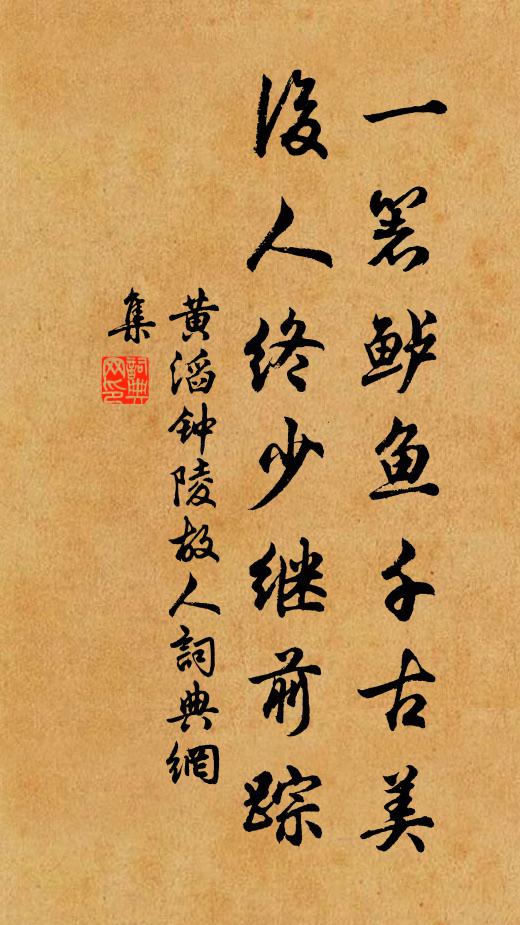 一箸鲈鱼千古美
後人终少继前踪
黄滔钟陵故人詞典網
集
詞典
网印